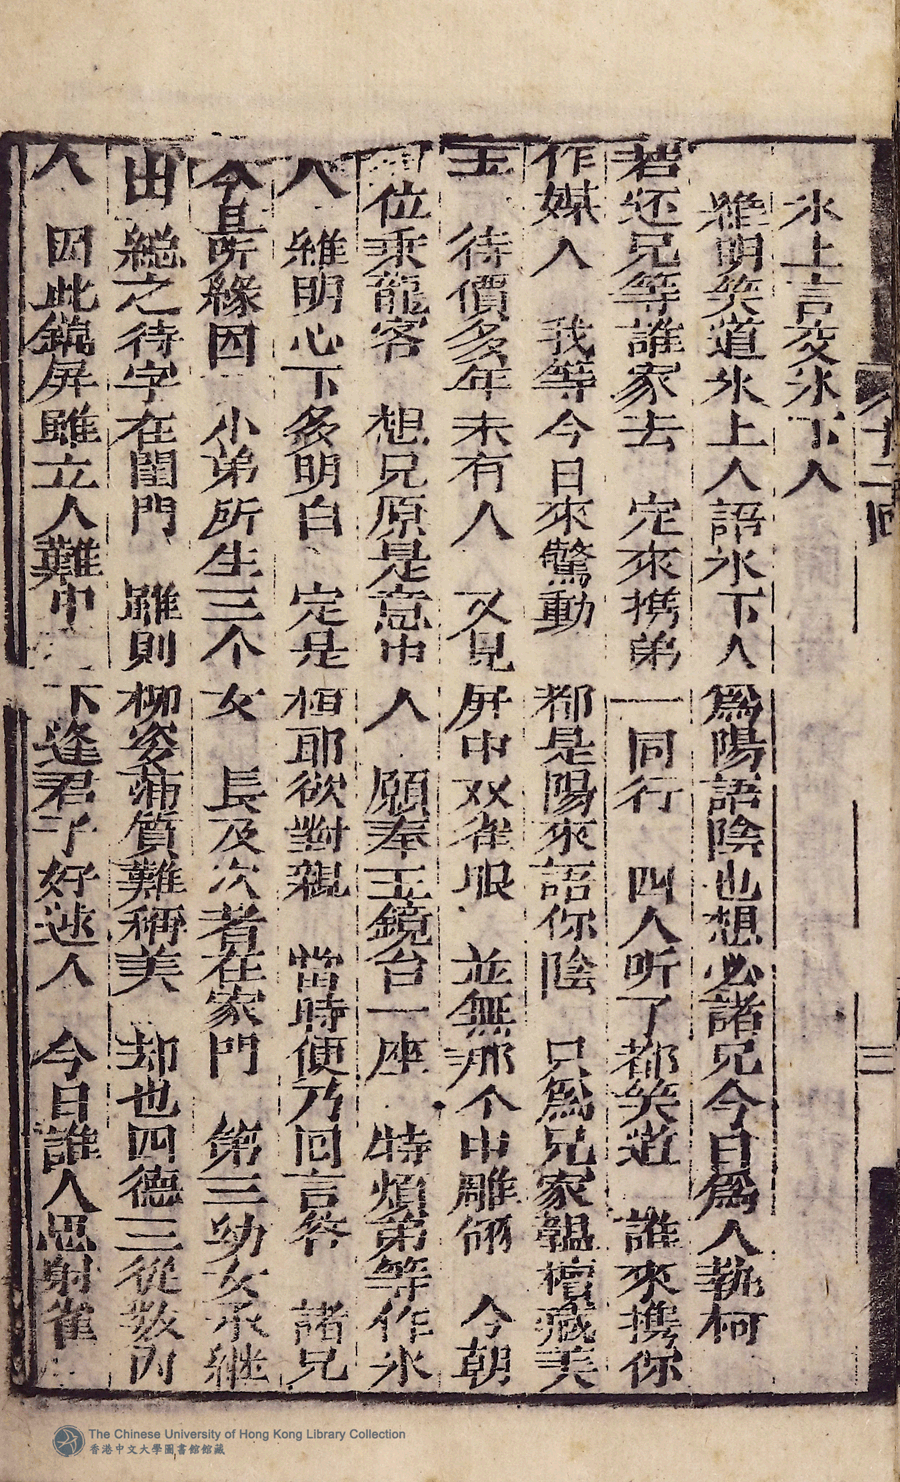 十二回
三
氷上言交氷下人
維明笑道氷上人語氷下人爲陽語陰也想必諸兄今日爲人執柯
若还兄等誰家去 定來携弟一同行 四人听了都笑道 誰來携你
作媒人 我等今日來驚動 都是陽來語你陰 只爲兄家韞櫝藏美
玉 待價多年未有人 又見屏中双雀眼 並無那个中雕翎 今朝
位乘龍客 想兄原是意中人 願奉玉鏡台一座 特煩弟等作氷
人 維明心下多明白 定是桓耶欲對親 當時便乃回言答 諸兄
今且所緣因 小弟所生三个女 長及次者在家門 第三幼女承继
出 總之待字在閨門 雖則柳姿蒲質難称美 却也四德三從教内
人 因此錦屏雖立人難中 下逢君子好逑人 今日誰人思射雀
The Chinese University of Hong Kong Library Collection
香港中文大學圖書館館藏